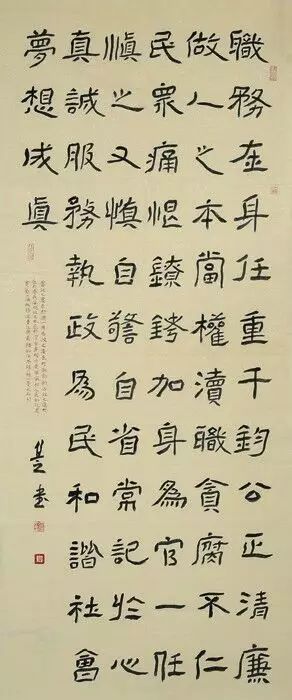 職務在身任重千鈞公正清廉
做人之本當權瀆職貪腐不仁
民眾痛恨鐐銬加身為官一任
慎之又慎自警自省常記於心
真誠服務執政為民和諧社會
夢想成真